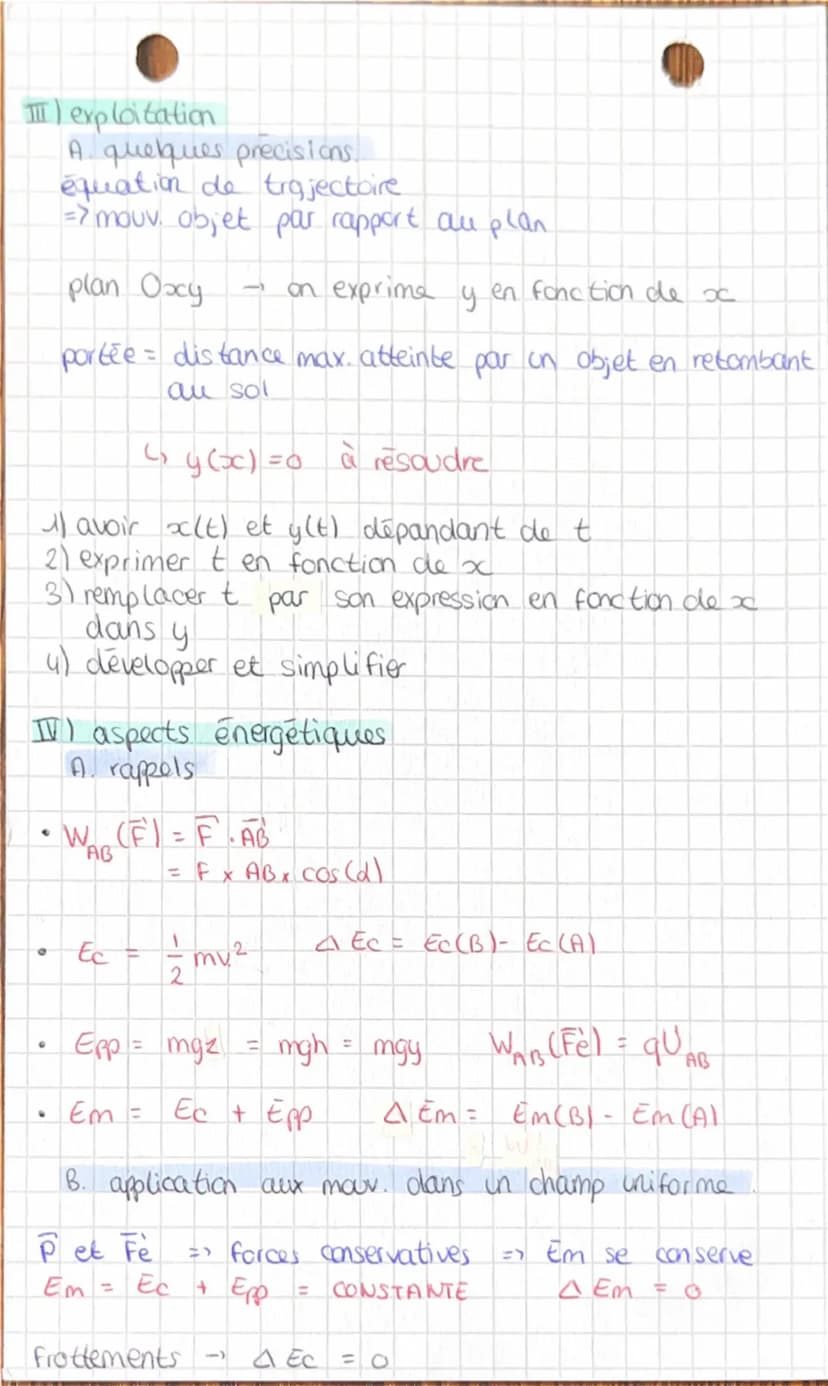 III) exploitation
A. quelques précisions.
équation de trajectoire
=> mouv. objet par rapport au plan
plan Oxy → on exprime y en fonction de x
portée = distance max. atteinte par un objet en retombant
au sol
↳ y(x) = 0 à résoudre
1) avoir x(t) et y(t) dépandant de t
2) exprimer t en fonction de x
3) remplacer t par son expression en fonction de x
dans y
4) développer et simplifier
IV) aspects énergétiques
A. rappels
• W_AB (F⃗) = F⃗ . AB⃗
= F x AB x cos(α)
• Ec = 1/2 mv² Δ Ec = Ec(B) - Ec(A)
• Epp = mgz = mgh = mgy W_AB (F⃗e) = qU_AB
• Em = Ec + Epp Δ Em = Em(B) - Em(A)
B. application aux mouv. dans un champ uniforme.
P⃗ et F⃗e => forces conservatives => Em se conserve
Em = Ec + Epp = CONSTANTE Δ Em = 0
frottements → Δ Ec = 0